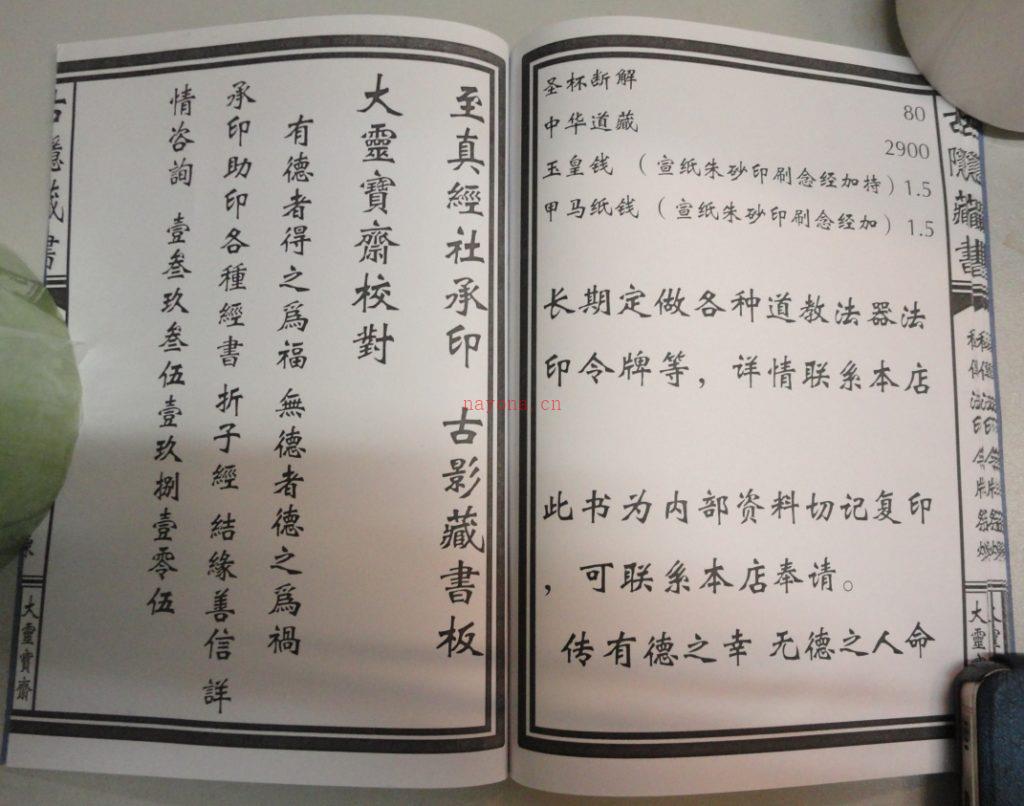 圣杯断解 80
中华道藏 2900
玉皇钱 （宣纸朱砂印刷念经加持）1.5
甲马纸钱 （宣纸朱砂印刷念经加）1.5
长期定做各种道教法器法
印令牌等，详情联系本店
此书为内部资料切记复印
，可联系本店奉请。
传有德之幸 无德之人命
至真經社承印 古影藏書板
大靈寶齋校對
有德者得之爲福 無德者德之爲禍
承印助印各種經書 折子經 結緣善信 詳
情咨詢 壹叁玖叁伍壹玖捌壹零伍
隱藏書
大靈寶齋
nayona.cn